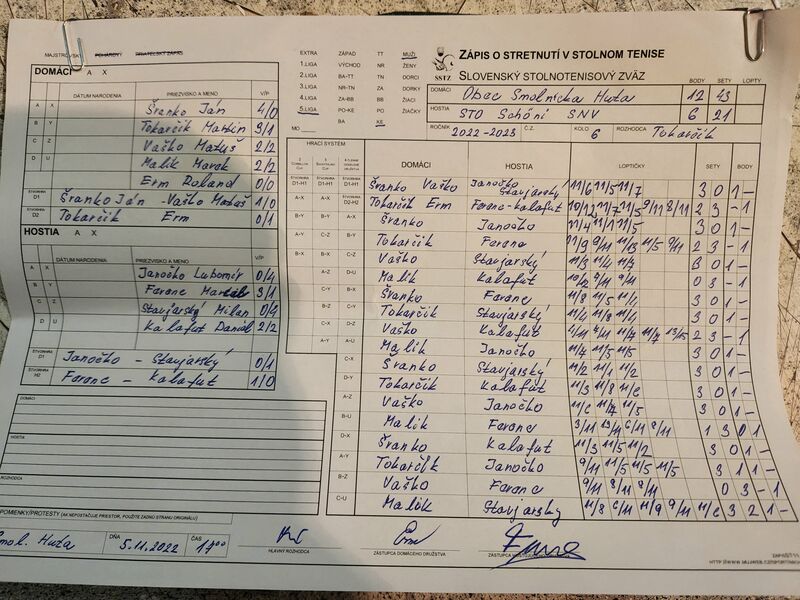 MAJSTROVSKÝ POHÁROVÝ PRIATEĽSKÝ ZÁPAS
EXTRA ZÁPAD TT MUŽI
1.LIGA VÝCHOD NR ŽENY
2.LIGA BA-TT TN DORCI
3.LIGA NR-TN ZA DORKY
4.LIGA ZA-BB BB ŽIACI
5.LIGA PO-KE PO ŽIAČKY
BA KE
MO
SSTZ
ZÁPIS O STRETNUTÍ V STOLNOM TENISE
SLOVENSKÝ STOLNOTENISOVÝ ZVÄZ
BODY SETY LOPTY
DOMÁCI Obec Smolnícka Huta 12 43
HOSTIA STO Schöni SNV 6 21
ROČNÍK 2022-2023 Č.Z. KOLO 6 ROZHODCA Tokarčík
DOMÁCI A X
DÁTUM NARODENIA PRIEZVISKO A MENO V/P
A X Švanko Ján 4/0
B Y Tokarčík Martin 3/1
C Z Vaško Matúš 2/2
D U Malik Marek 2/2
Erm Roland 0/0
ŠTVORHRA D1 Švanko Ján - Vaško Matúš 1/0
ŠTVORHRA D2 Tokarčík Erm 0/1
HOSTIA A X
DÁTUM NARODENIA PRIEZVISKO A MENO V/P
A X Janočko Lubomír 0/4
B Y Ferenc 3/1
C Z Stavjarský Milan 0/4
D U Kalafut Daniel 2/2
ŠTVORHRA H1 Janočko - Stavjarský 0/1
ŠTVORHRA H2 Ferenc - Kalafut 1/0
DOMÁCI
HOSTIA
HRACÍ SYSTÉM
DOMÁCI HOSTIA LOPTIČKY SETY BODY
D1-H1 D1-H1 D1-H1 Švanko Vaško Janočko Stavjarský 11/6 11/5 11/7 3 0 1 -
A-X A-X D2-H2 Tokarčík Erm Ferenc-Kalafut 10/12 11/7 11/5 9/11 8/11 2 3 - 1
B-Y B-Y A-X Švanko Janočko 11/4 11/7 11/5 3 0 1 -
C-Z B-Y Tokarčík Ferenc 11/9 9/11 11/5 9/11 2 3 - 1
B-X B-X C-Z Vaško Stavjarský 11/3 11/4 11/7 3 0 1 -
A-Z D-U Malik Kalafut 9/11 9/11 0 3 - 1
C-Y B-X Švanko Ferenc 11/8 11/5 11/4 3 0 1 -
B-Z C-Y Tokarčík Stavjarský 11/4 11/8 11/4 3 0 1 -
C-X D-Z Vaško Kalafut 11/4 11/7 13/15 2 3 - 1
A-Y A-U Malik Janočko 11/4 11/5 11/5 3 0 1 -
C-X Švanko Stavjarský 11/2 11/1 11/2 3 0 1 -
D-Y Tokarčík Kalafut 11/3 11/8 11/6 3 0 1 -
A-Z Vaško Janočko 11/6 11/7 11/5 3 0 1 -
B-U Malik Ferenc 3/11 13/11 6/11 9/11 1 3 0 1
D-X Švanko Kalafut 11/3 11/5 11/2 3 0 1 -
A-Y Tokarčík Janočko 9/11 11/5 11/5 11/5 3 1 1 -
B-Z Vaško Ferenc 9/11 8/11 9/11 0 3 - 1
C-U Malik Stavjarský 11/8 6/11 11/9 9/11 11/6 3 2 1 -
POMIENKY/PROTESTY (AK NEPOSTAČUJE PRIESTOR, POUŽITE ZADNÚ STRANU ORIGINÁLU)
Smol. Huta DŇA 5.11.2022 ČAS 17:00
HLAVNÝ ROZHODCA
Erm
ZÁSTUPCA DOMÁCEHO DRUŽSTVA